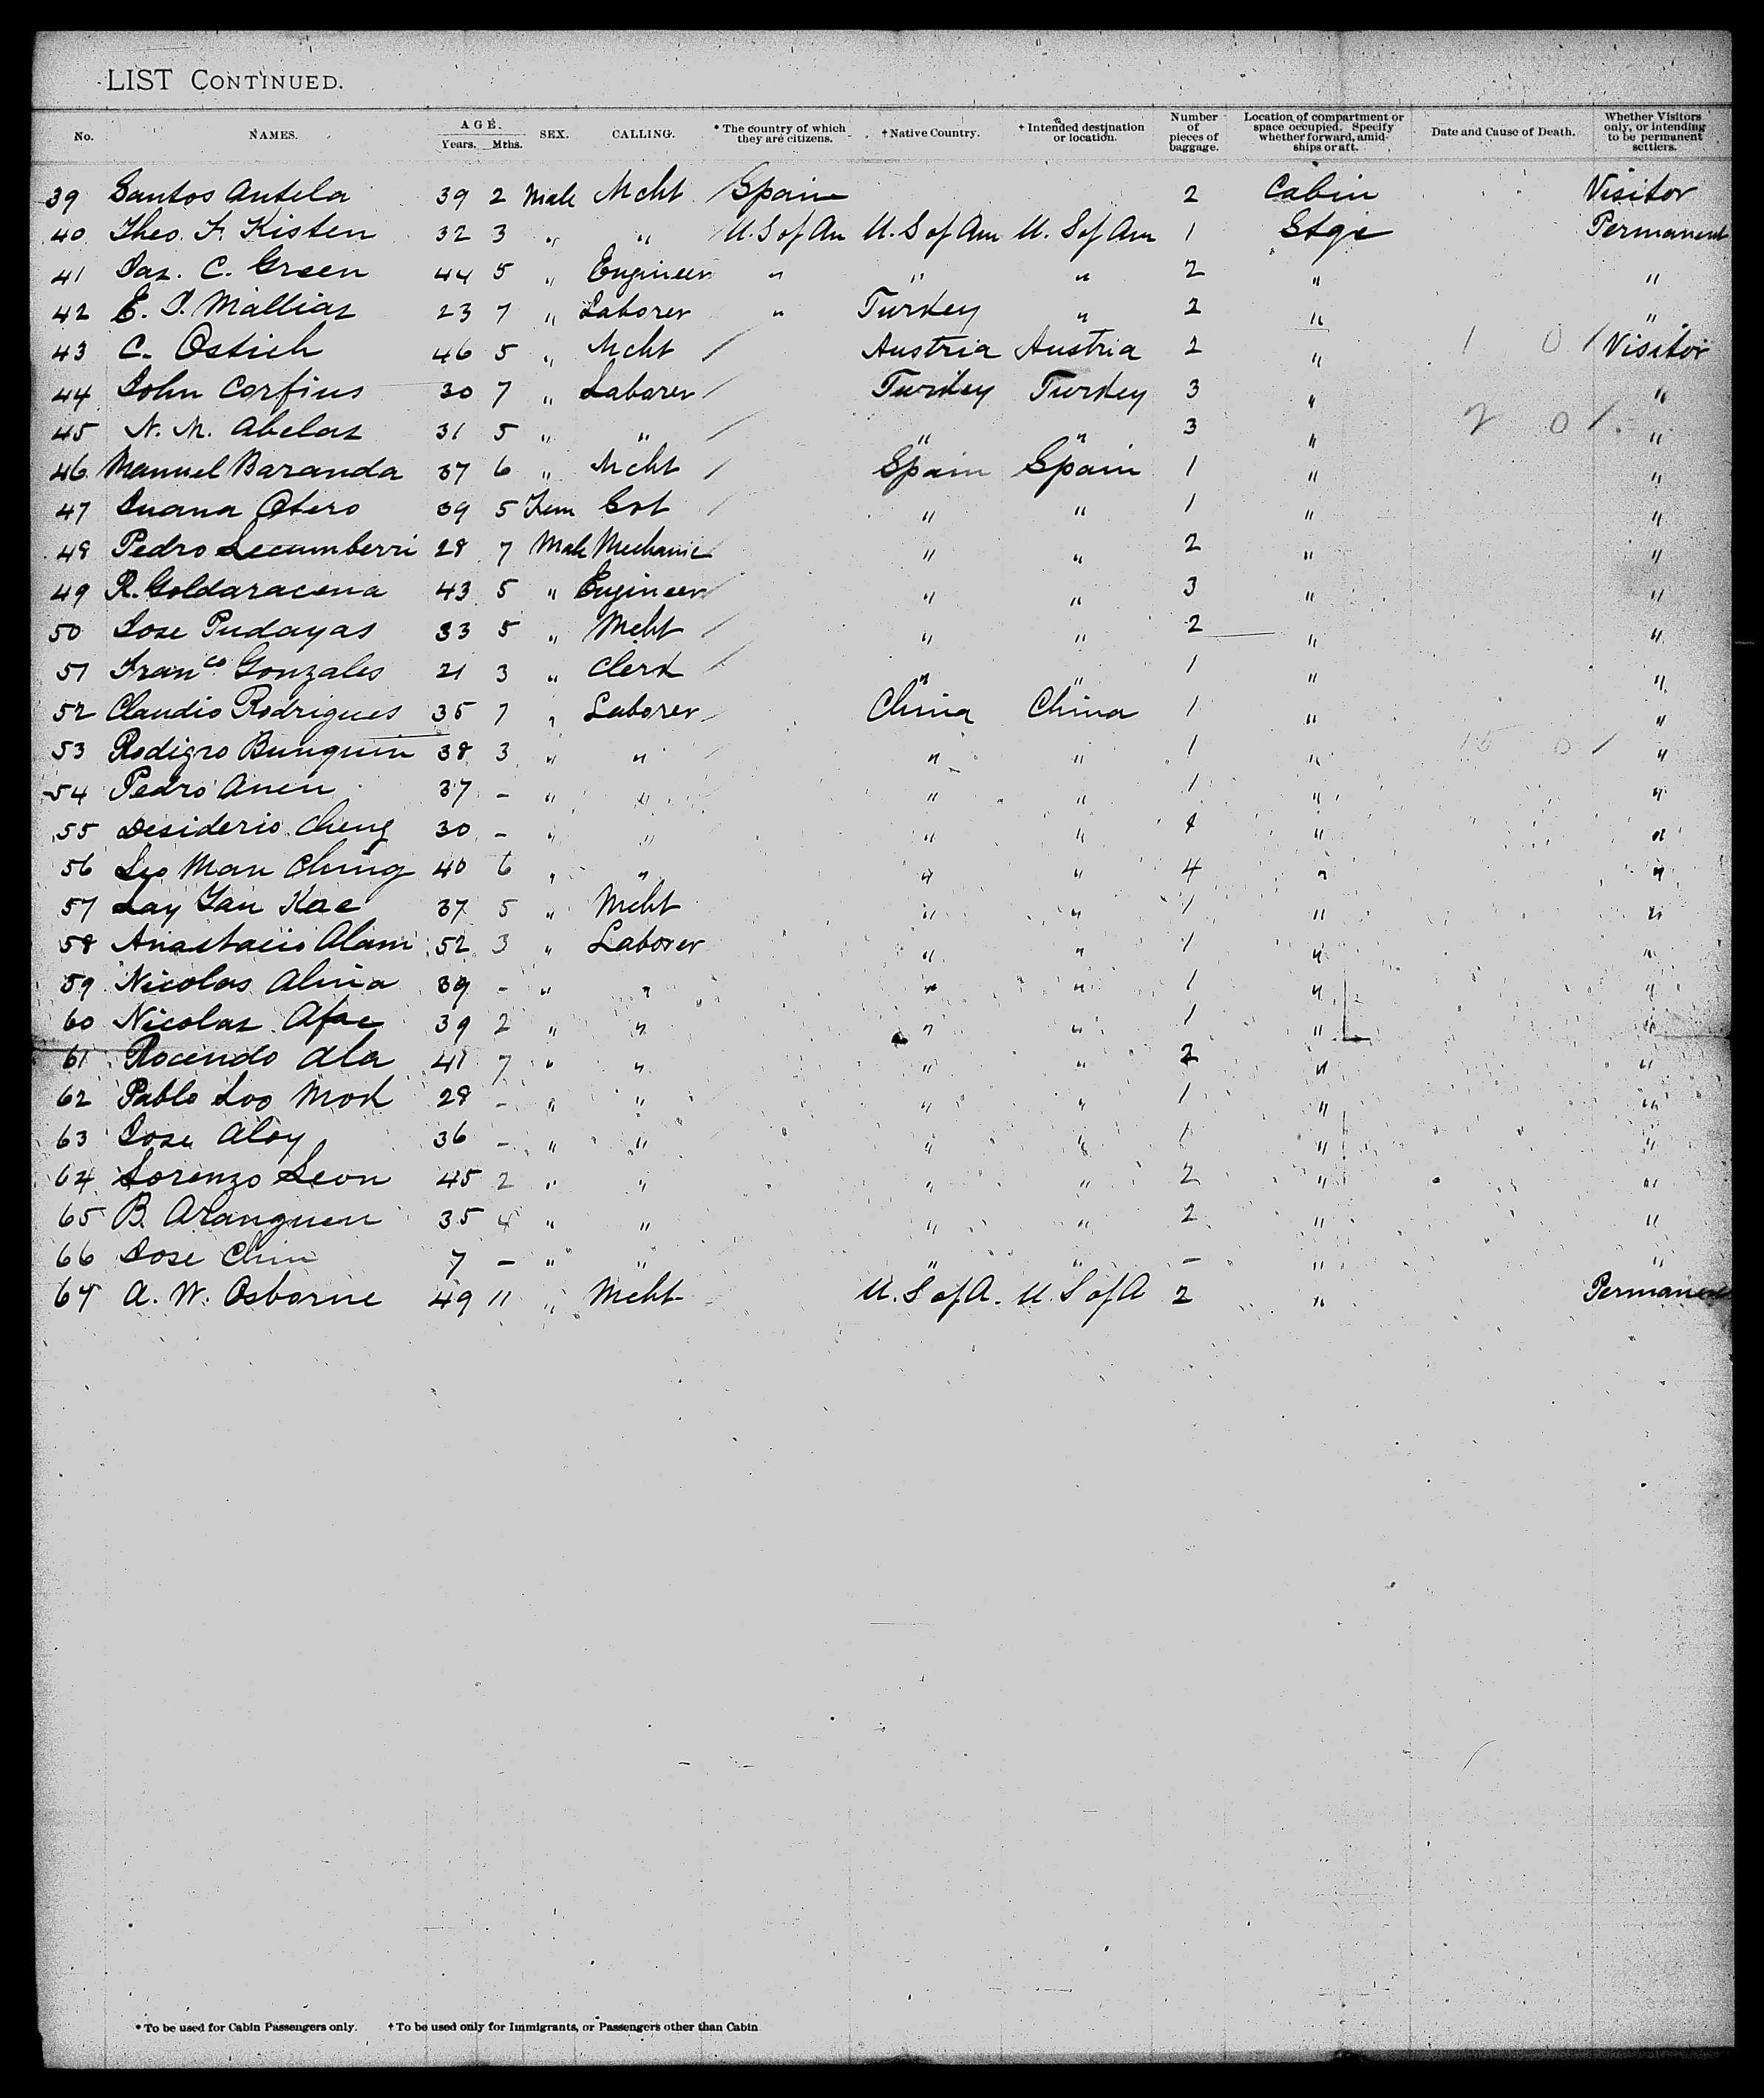 LIST CONTINUED.
No. NAMES. AGE. Years. Mths. SEX. CALLING. * The country of which they are citizens. † Native Country. † Intended destination or location. Number of pieces of baggage. Location of compartment or space occupied. Specify whether forward, amidships or aft. Date and Cause of Death. Whether Visitors only, or intending to be permanent settlers.
39 Santos Antela 39 2 Male Mcht Spain 2 Cabin Visitor
40 Theo. F. Kisten 32 3 " " U.S of Am U.S of Am U.S of Am 1 Stge Permanent
41 Jas. C. Green 44 5 " Engineer " " " 2 " "
42 E. J. Mallias 23 7 " Laborer " Turkey " 2 " "
43 C. Ostich 46 5 " Mcht / Austria Austria 2 " 1 0 / Visitor
44 John Corfius 30 7 " Laborer / Turkey Turkey 3 " "
45 N. M. Abelas 31 5 " " / " " 3 " 2 0 / "
46 Manuel Baranda 37 6 " Mcht / Spain Spain 1 " "
47 Juana Otero 39 5 Fem / " " 1 " "
48 Pedro Lecumberri 28 7 Male Mechanic " " 2 " "
49 R. Goldaracena 43 5 " Engineer " " 3 " "
50 Jose Pudayas 33 5 " Mcht / " " 2 " "
51 Franco Gonzales 21 3 " Clerk / " " 1 " "
52 Claudio Rodrigues 35 7 " Laborer / China China 1 " "
53 Rodigro Bunquin 38 3 " " / " " 1 " 15 0 / "
54 Pedro Anen 37 - " " " " 1 " "
55 Desiderio Cheng 30 - " " " " " "
56 Leo Man Ching 40 6 " " " " 4 " "
57 Lay Yan Kee 37 5 " Mcht " " 1 " "
58 Anastacio Alam 52 3 " Laborer " " 1 " "
59 Nicolas Alina 39 - " " " " 1 " "
60 Nicolas Afae 39 2 " " " " 1 " "
61 Rocendo Ala 41 7 " " " " 2 " "
62 Pablo Loo Mok 28 - " " " " 1 " "
63 Jose Aloy 36 - " " " " 1 " "
64 Lorenzo Leon 45 2 " " " " 2 " "
65 B. Aranguen 35 4 " " " " 2 " "
66 Jose Chin 7 - " " " " - " "
67 A. W. Osborne 49 11 " Mcht U.S of A. U.S of A 2 " Permanent
* To be used for Cabin Passengers only. † To be used only for Immigrants, or Passengers other than Cabin